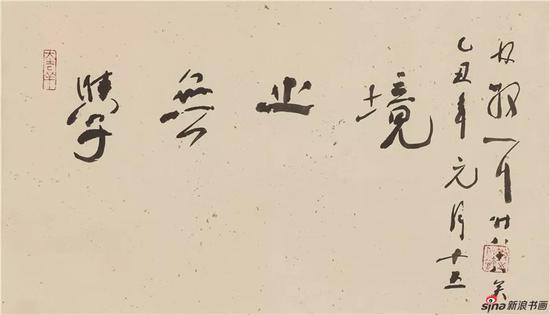 大吉羊
學無止境
乙丑年元月十五
林散耳時八十八矣
sina新浪书画